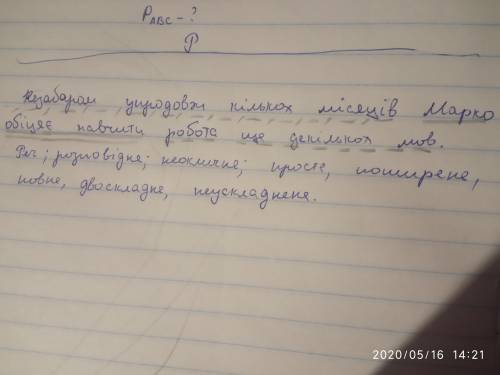 P ABC - ?
P
Незабаром упродовж кількох місяців Марко
обіцяє навчити робота ще декількох мов.
Реч; розповідне; неоклична; просте, поширене,
повне, двоскладне, неускладнене.
2020/05/16 14:21